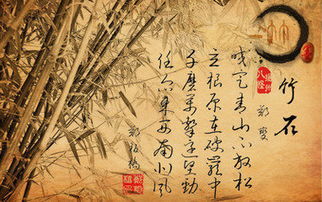 竹石
郑燮
咬定青山不放松
立根原在破巖中
千磨萬擊还坚劲
任尔东西南北风
郑板桥